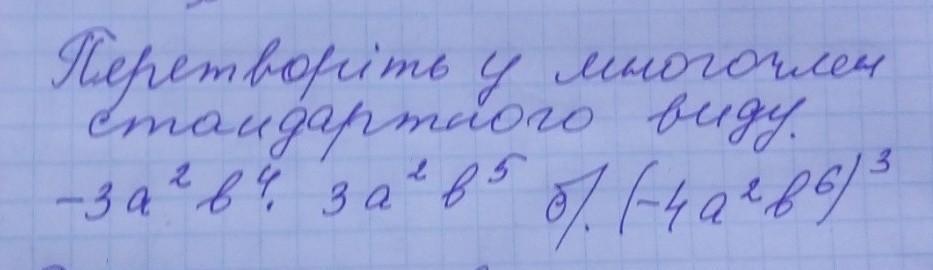 Перетворіть у многочлен
стандартного виду.
-3а²в⁴. 3а²в⁵ б). (-4а²в⁶)³